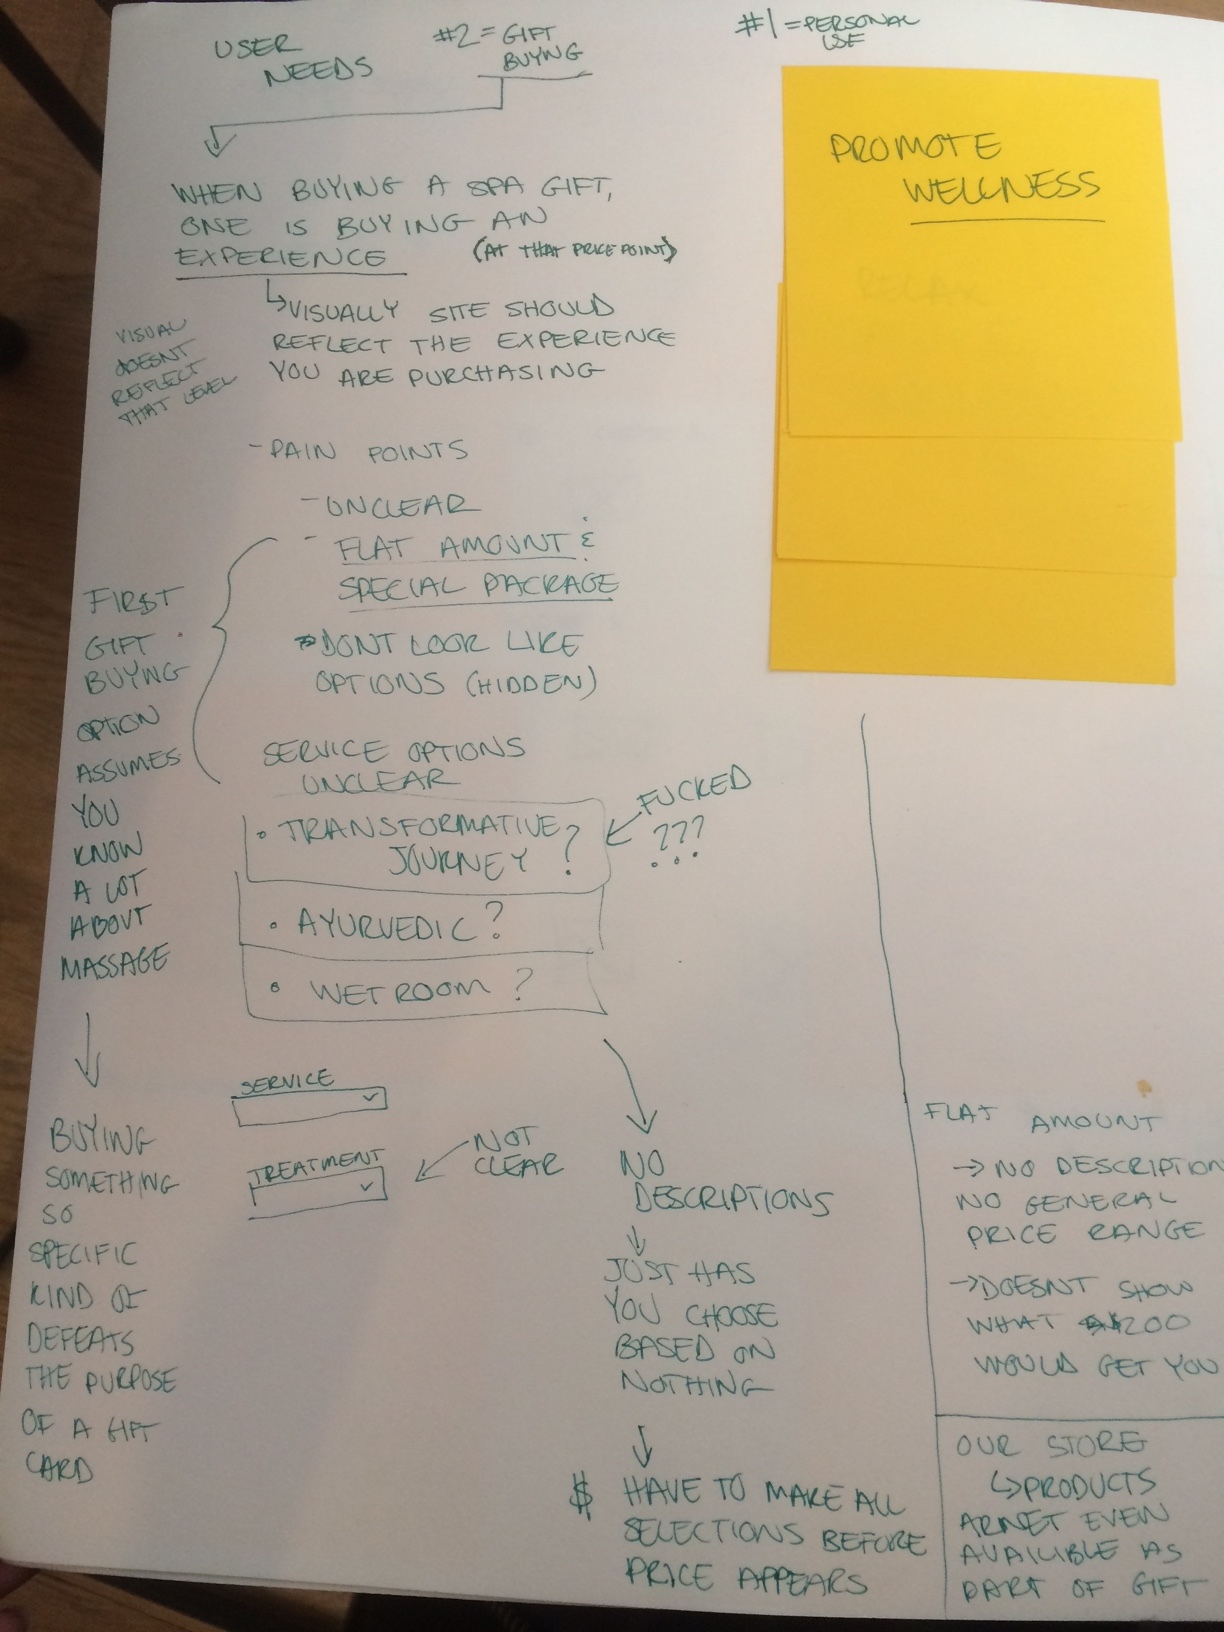 USER
NEEDS
#2 = GIFT
BUYING
#1 = PERSONAL
USE
PROMOTE
WELLNESS
RELAX
WHEN BUYING A SPA GIFT,
ONE IS BUYING AN
EXPERIENCE (AT THAT PRICE POINT)
↳ VISUALLY SITE SHOULD
REFLECT THE EXPERIENCE
YOU ARE PURCHASING
VISUAL
DOESNT
REFLECT
THAT LEVEL
- PAIN POINTS
- UNCLEAR
- FLAT AMOUNT &
SPECIAL PACKAGE
DONT LOOK LIKE
OPTIONS (HIDDEN)
SERVICE OPTIONS
UNCLEAR
• TRANSFORMATIVE
JOURNEY ?
FUCKED
???
• AYURVEDIC ?
• WET ROOM ?
FIRST
GIFT
BUYING
OPTION
ASSUMES
YOU
KNOW
A LOT
ABOUT
MASSAGE
BUYING
SOMETHING
SO
SPECIFIC
KIND OF
DEFEATS
THE PURPOSE
OF A GIFT
CARD
SERVICE
TREATMENT
NOT
CLEAR
NO
DESCRIPTIONS
↓
JUST HAS
YOU CHOOSE
BASED ON
NOTHING
↓
$ HAVE TO MAKE ALL
SELECTIONS BEFORE
PRICE APPEARS
FLAT AMOUNT
→ NO DESCRIPTION
NO GENERAL
PRICE RANGE
→ DOESNT SHOW
WHAT $200
WOULD GET YOU
OUR STORE
↳ PRODUCTS
ARNET EVEN
AVAILIBLE AS
PART OF GIFT